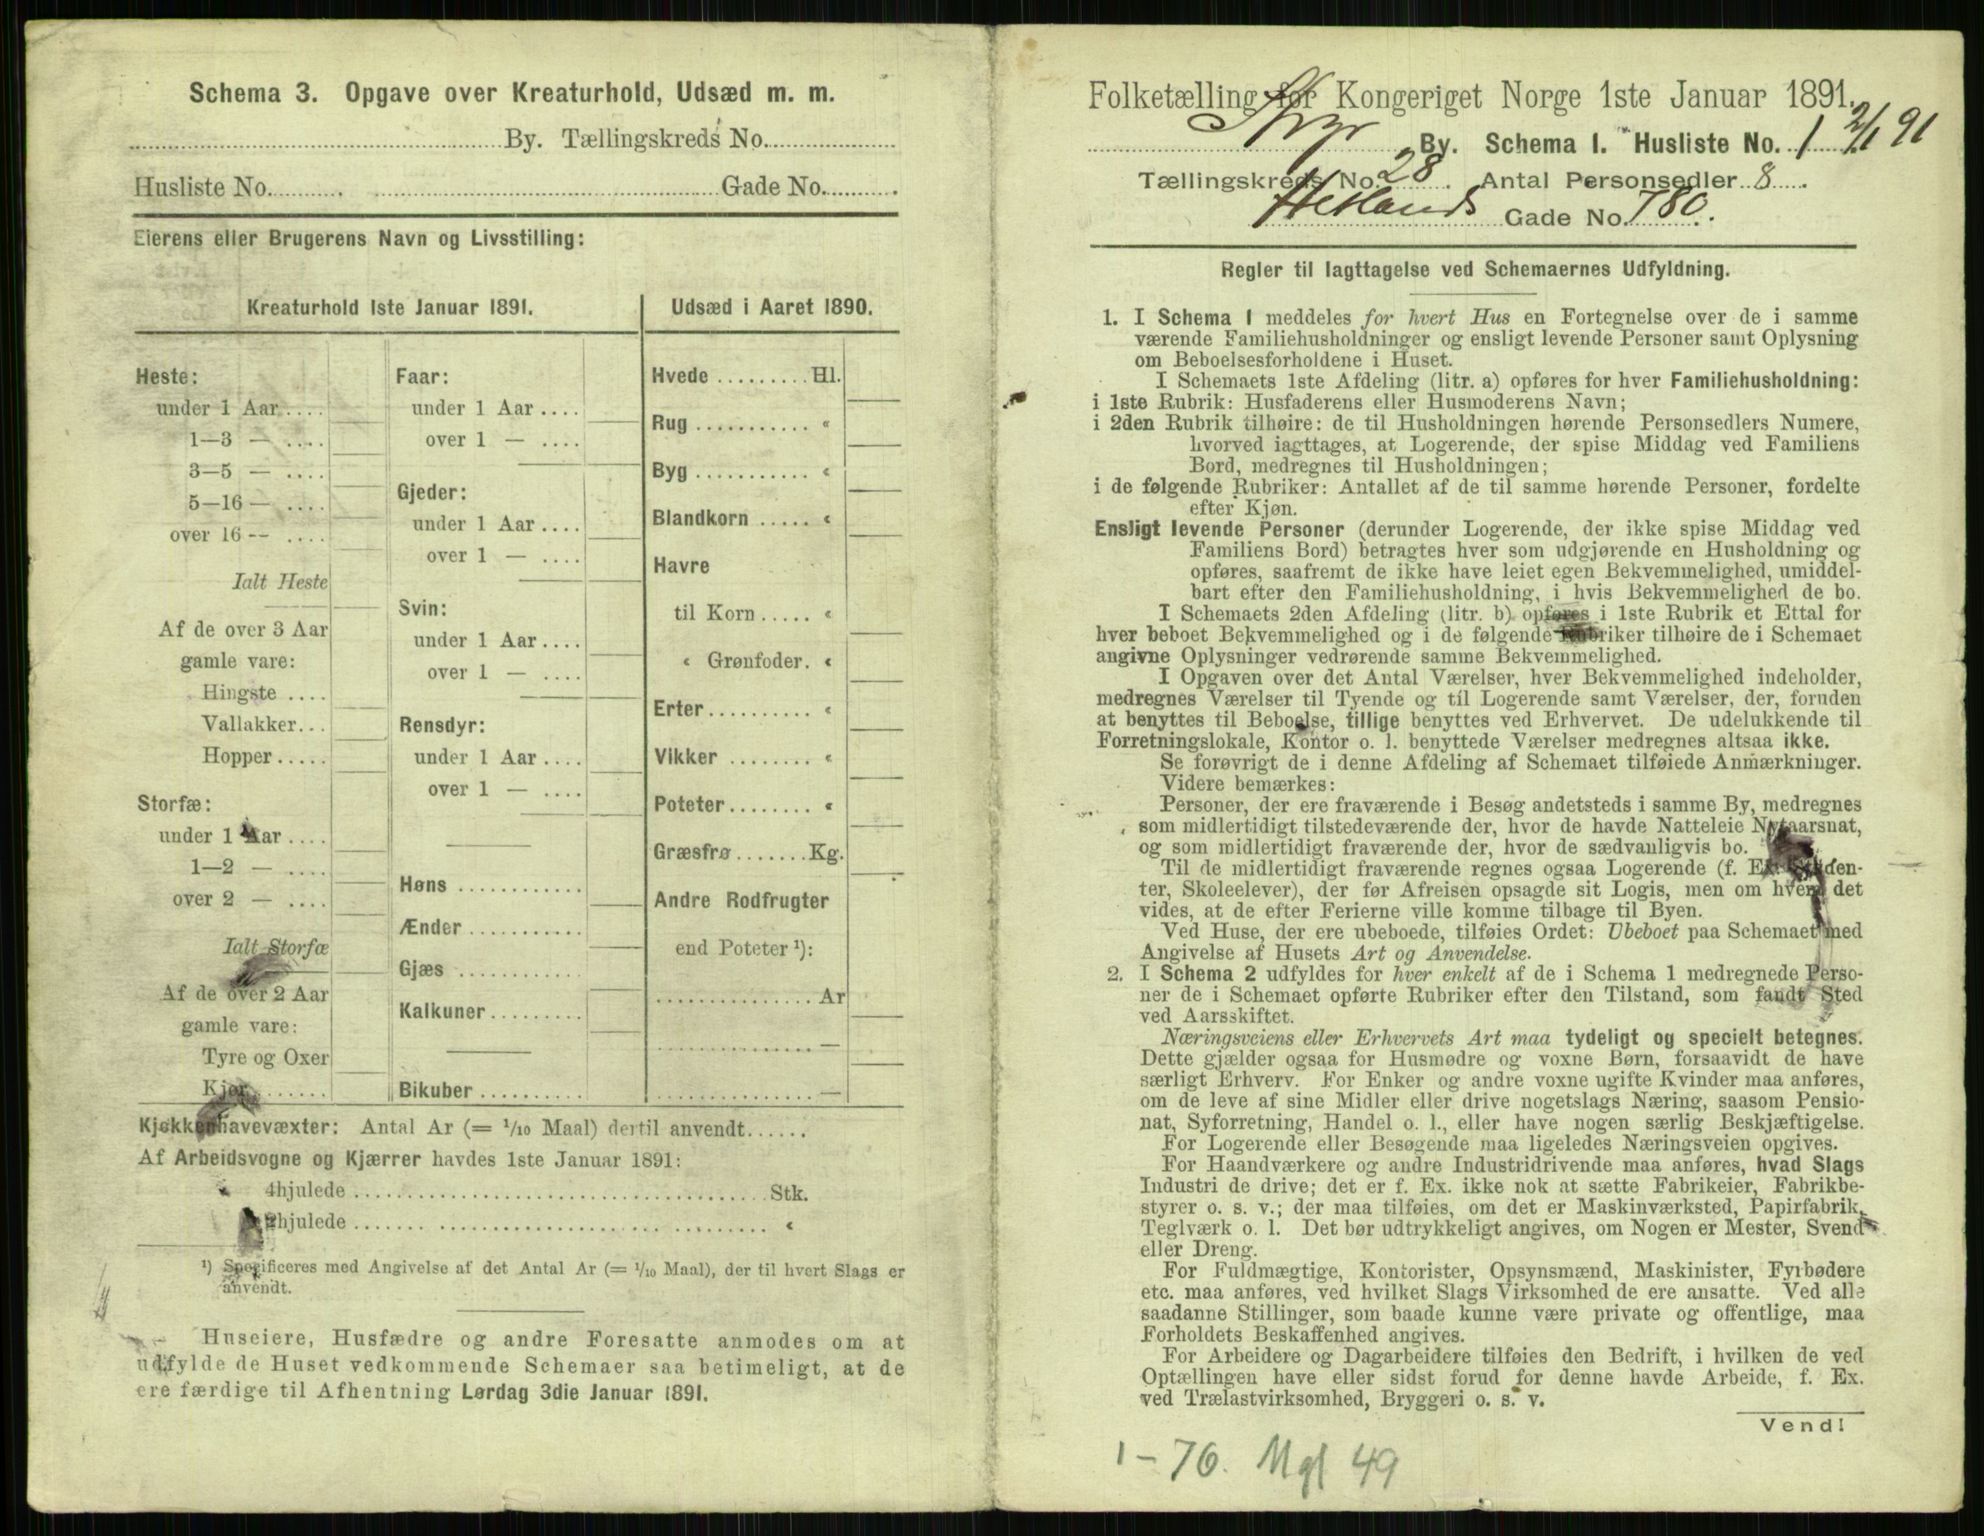 Schema 3. Opgave over Kreaturhold, Udsæd m. m.
By. Tællingskreds No.
Husliste No. Gade No.
Eierens eller Brugerens Navn og Livsstilling:
Kreaturhold 1ste Januar 1891.
Heste:
under 1 Aar ....
1—3 — ....
3—5 — ....
5—16 — ....
over 16 -- ....
Ialt Heste
Af de over 3 Aar
gamle vare:
Hingste ....
Vallakker...
Hopper.....
Storfæ:
under 1 Aar....
1—2 — ....
over 2 — ....
Ialt Storfæ
Af de over 2 Aar
gamle vare:
Tyre og Oxer
Kjør.......
Faar:
under 1 Aar ....
over 1 — ....
Gjeder:
under 1 Aar ....
over 1 — ....
Svin:
under 1 Aar ....
over 1 — ....
Rensdyr:
under 1 Aar ....
over 1 — ....
Høns ...........
Ænder..........
Gjæs ...........
Kalkuner.........
Bikuber ..........
Udsæd i Aaret 1890.
Hvede .........Hl.
Rug ........... «
Byg ........... «
Blandkorn ..... «
Havre
til Korn..... «
« Grønfoder. «
Erter.......... «
Vikker ........ «
Poteter........ «
Græsfrø.......Kg.
Andre Rodfrugter
end Poteter ¹):
...............Ar
............... —
............... —
Kjøkkenhavevæxter: Antal Ar (= 1/10 Maal) dertil anvendt......
Af Arbeidsvogne og Kjærrer havdes 1ste Januar 1891:
4hjulede ........................................Stk.
2hjulede ....... ..................... ......... «
¹) Specificeres med Angivelse af det Antal Ar (= 1/10 Maal), der til hvert Slags er
anvendt.
Huseiere, Husfædre og andre Foresatte anmodes om at
udfylde de Huset vedkommende Schemaer saa betimeligt, at de
ere færdige til Afhentning Lørdag 3die Januar 1891.
Folketælling for Kongeriget Norge 1ste Januar 1891.
By. Schema I. Husliste No. 1 2/1 91
Tællingskreds No. 28. Antal Personsedler 8.
Hetlands Gade No. 780.
Regler til Iagttagelse ved Schemaernes Udfyldning.
1. I Schema 1 meddeles for hvert Hus en Fortegnelse over de i samme
værende Familiehusholdninger og ensligt levende Personer samt Oplysning
om Beboelsesforholdene i Huset.
I Schemaets 1ste Afdeling (litr. a) opføres for hver Familiehusholdning:
i 1ste Rubrik: Husfaderens eller Husmoderens Navn;
i 2den Rubrik tilhøire: de til Husholdningen hørende Personsedlers Numere,
hvorved iagttages, at Logerende, der spise Middag ved Familiens
Bord, medregnes til Husholdningen;
i de følgende Rubriker: Antallet af de til samme hørende Personer, fordelte
efter Kjøn.
Ensligt levende Personer (derunder Logerende, der ikke spise Middag ved
Familiens Bord) betragtes hver som udgjørende en Husholdning og
opføres, saafremt de ikke have leiet egen Bekvemmelighed, umiddel-
bart efter den Familiehusholdning, i hvis Bekvemmelighed de bo.
I Schemaets 2den Afdeling (litr. b) opføres i 1ste Rubrik et Ettal for
hver beboet Bekvemmelighed og i de følgende Rubriker tilhøire de i Schemaet
angivne Oplysninger vedrørende samme Bekvemmelighed.
I Opgaven over det Antal Værelser, hver Bekvemmelighed indeholder,
medregnes Værelser til Tyende og til Logerende samt Værelser, der, foruden
at benyttes til Beboelse, tillige benyttes ved Erhvervet. De udelukkende til
Forretningslokale, Kontor o. l. benyttede Værelser medregnes altsaa ikke.
Se forøvrigt de i denne Afdeling af Schemaet tilføiede Anmærkninger.
Videre bemærkes:
Personer, der ere fraværende i Besøg andetsteds i samme By, medregnes
som midlertidigt tilstedeværende der, hvor de havde Natteleie Nytaarsnat,
og som midlertidigt fraværende der, hvor de sædvanligvis bo.
Til de midlertidigt fraværende regnes ogsaa Logerende (f. Ex. Studen-
ter, Skoleelever), der før Afreisen opsagde sit Logis, men om hvem det
vides, at de efter Ferierne ville komme tilbage til Byen.
Ved Huse, der ere ubeboede, tilføies Ordet: Ubeboet paa Schemaet med
Angivelse af Husets Art og Anvendelse.
2. I Schema 2 udfyldes for hver enkelt af de i Schema 1 medregnede Perso-
ner de i Schemaet opførte Rubriker efter den Tilstand, som fandt Sted
ved Aarsskiftet.
Næringsveiens eller Erhvervets Art maa tydeligt og specielt betegnes.
Dette gjælder ogsaa for Husmødre og voxne Børn, forsaavidt de have
særligt Erhverv. For Enker og andre voxne ugifte Kvinder maa anføres,
om de leve af sine Midler eller drive nogetslags Næring, saasom Pensio-
nat, Syforretning, Handel o. l., eller have nogen særlig Beskjæftigelse.
For Logerende eller Besøgende maa ligeledes Næringsveien opgives.
For Haandværkere og andre Industridrivende maa anføres, hvad Slags
Industri de drive; det er f. Ex. ikke nok at sætte Fabrikeier, Fabrikbe-
styrer o. s. v.; der maa tilføies, om det er Maskinværksted, Papirfabrik,
Teglværk o. l. Det bør udtrykkeligt angives, om Nogen er Mester, Svend
eller Dreng.
For Fuldmægtige, Kontorister, Opsynsmænd, Maskinister, Fyrbødere
etc. maa anføres, ved hvilket Slags Virksomhed de ere ansatte. Ved alle
saadanne Stillinger, som baade kunne være private og offentlige, maa
Forholdets Beskaffenhed angives.
For Arbeidere og Dagarbeidere tilføies den Bedrift, i hvilken de ved
Optællingen have eller sidst forud for denne havde Arbeide, f. Ex.
ved Trælastvirksomhed, Bryggeri o. s. v.
Vend!
1–76. Mgl 49